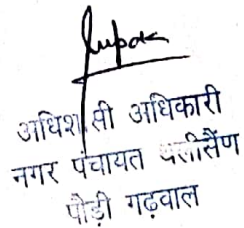 अधिशासी अधिकारी
नगर पंचायत थलीसैंण
पौड़ी गढ़वाल